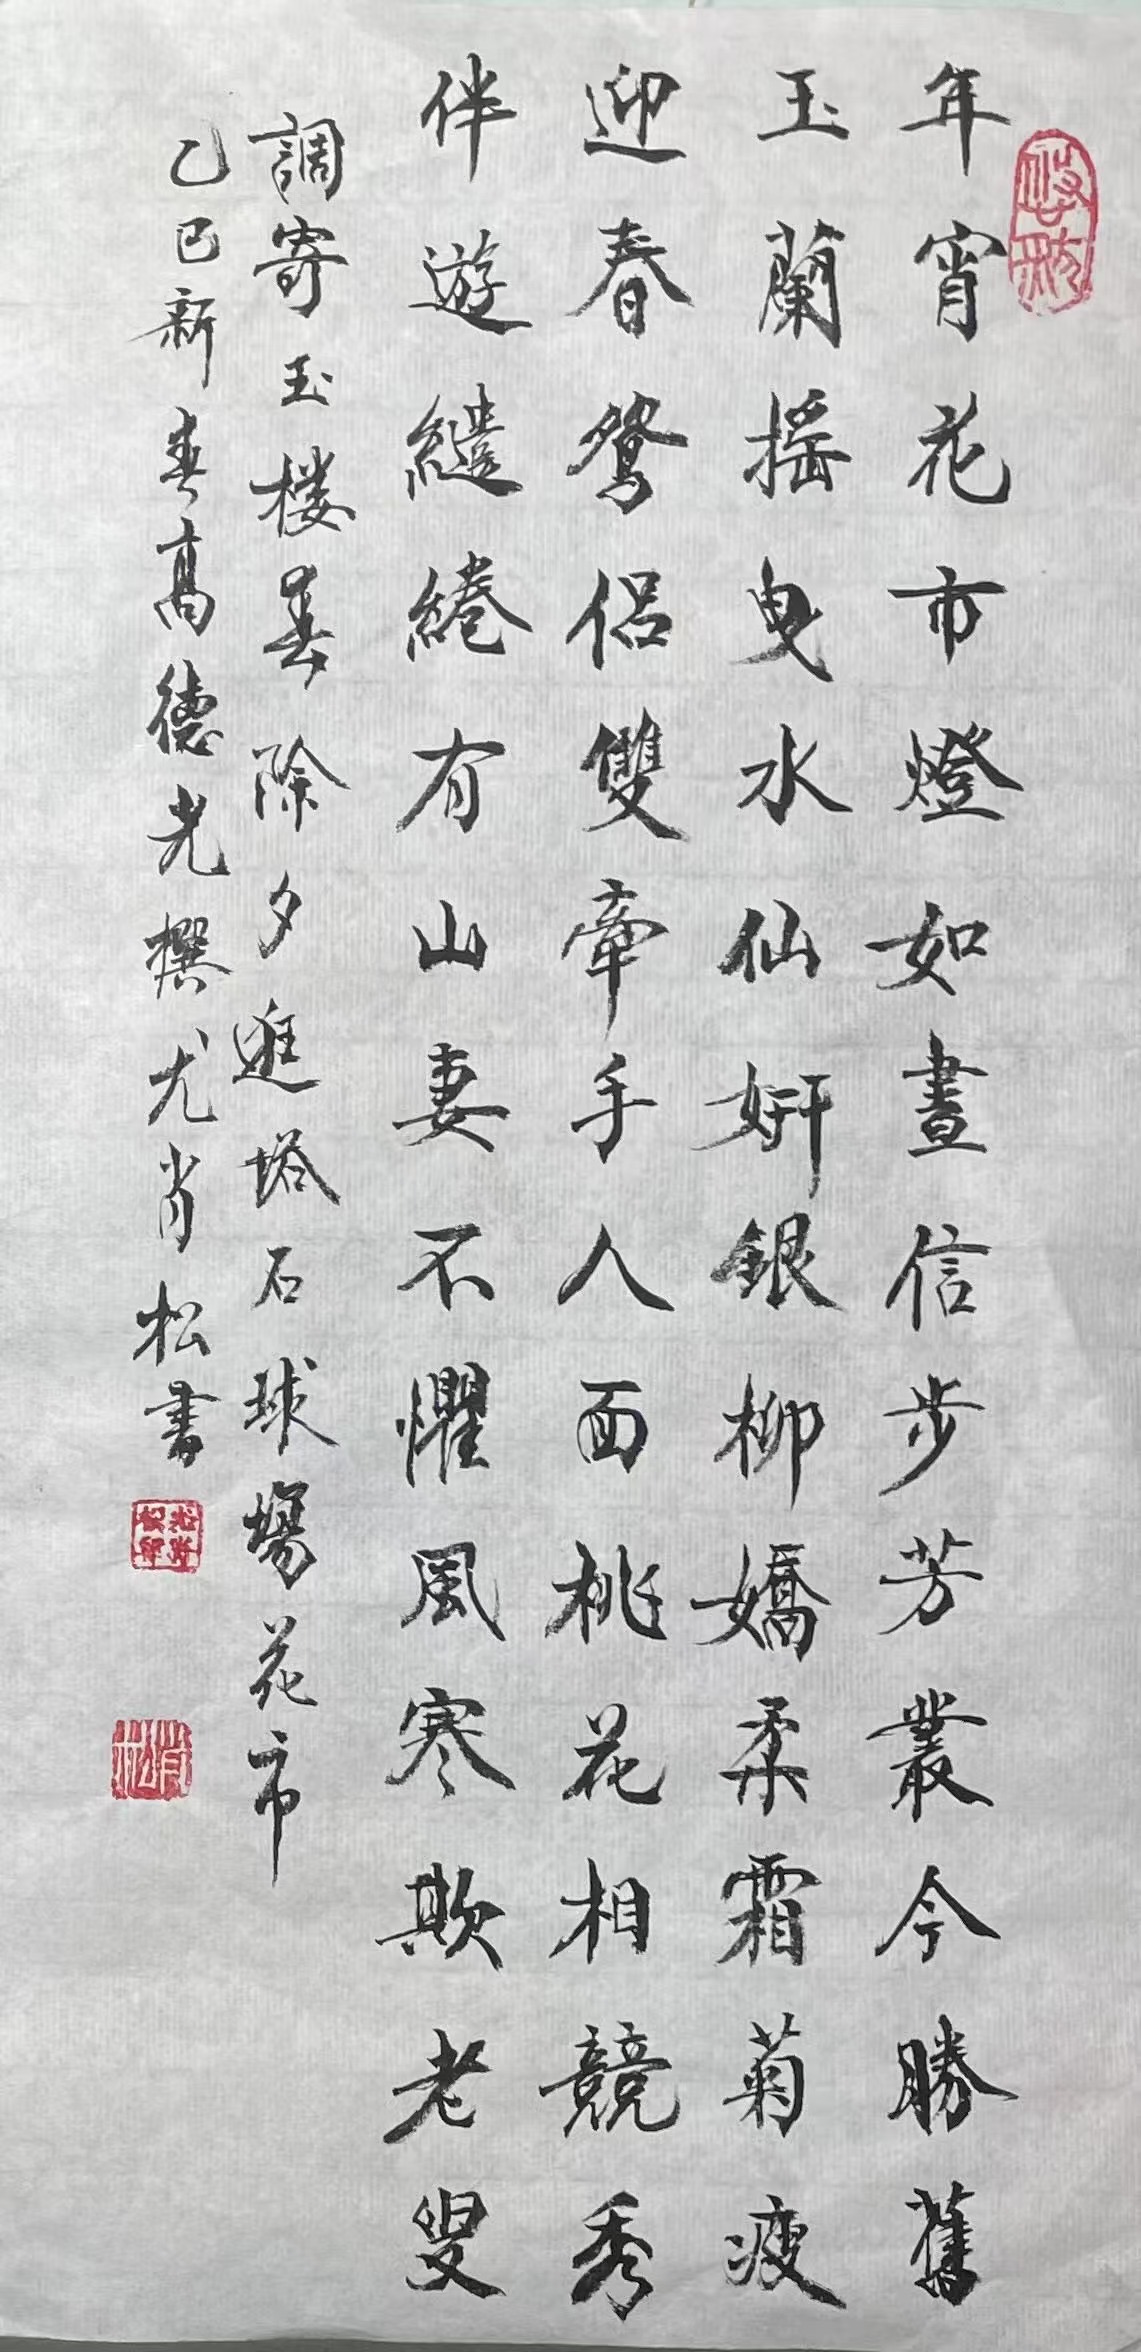 年宵花市燈如晝信步芳叢今勝舊
玉蘭摇曳水仙妍銀柳嬌柔霜菊瘦
迎春鴛侣雙牽手人面桃花相競秀
伴遊繾綣有山妻不懼風寒欺老叟
調寄玉楼春除夕逛塔石球場花市
乙巳新春高德光撰尤肖松書
肖松